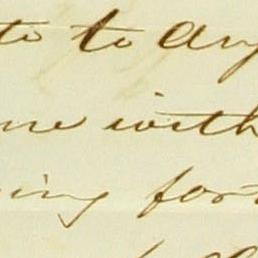 to to any
me with
ing for